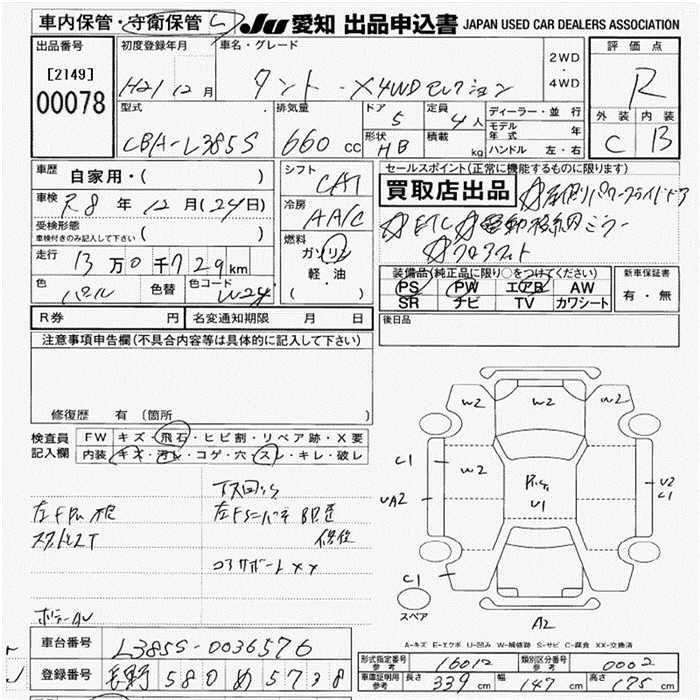 車内保管・守衛保管
JU 愛知 出品申込書 JAPAN USED CAR DEALERS ASSOCIATION
出品番号
[2149]
00078
初度登録年月
H21 12 月
車名・グレード
タント X4WD セレクション
2WD・4WD
評価点
R
外装 内装
C B
型式
CBA-L385S
排気量
660 cc
ドア
5
定員
4 人
形状
HB
積載
kg
ディーラー・並行
モデル年式 年
ハンドル 左・右
車歴
自家用・( )
車検
R8 年 12 月(24日)
受検形態
車検付きのみ記入して下さい ( )
走行
13 万 0 千 729 km
色
パール
色替
色コード
W24
シフト
CAT
冷房
AAC
燃料
ガソリン
軽・油
( ・ )
セールスポイント(正常に機能するものに限ります)
買取店出品 ☆左側パワースライドドア
☆ETC ☆電動格納ミラー
☆フロアマット
装備品(純正品に限り○をつけてください)
PS PW エアB AW
SR ナビ TV カワシート
新車保証書
有・無
R券 円 名変通知期限 月 日
後日品
注意事項申告欄(不具合内容等は具体的に記入して下さい)
修復歴 有 〔箇所 〕
検査員記入欄
FW キズ・飛石・ヒビ割・リペア跡・X要
内装 キズ・汚レ・コゲ・穴・スレ・キレ・破レ
コアサポートXX
W2 W2 W2
C1
W2
UA2
U1
U2
C1
C1
スペア
A2
A-キズ E-エクボ U-凹み W-補修跡 S-サビ C-腐食 XX-交換済
車台番号
L385S-0036576
登録番号
580 め 5738
形式指定番号 参考
16012
類別区分番号 参考
0002
車庫証明用 参考
長さ 339 cm 幅 147 cm 高さ 175 cm